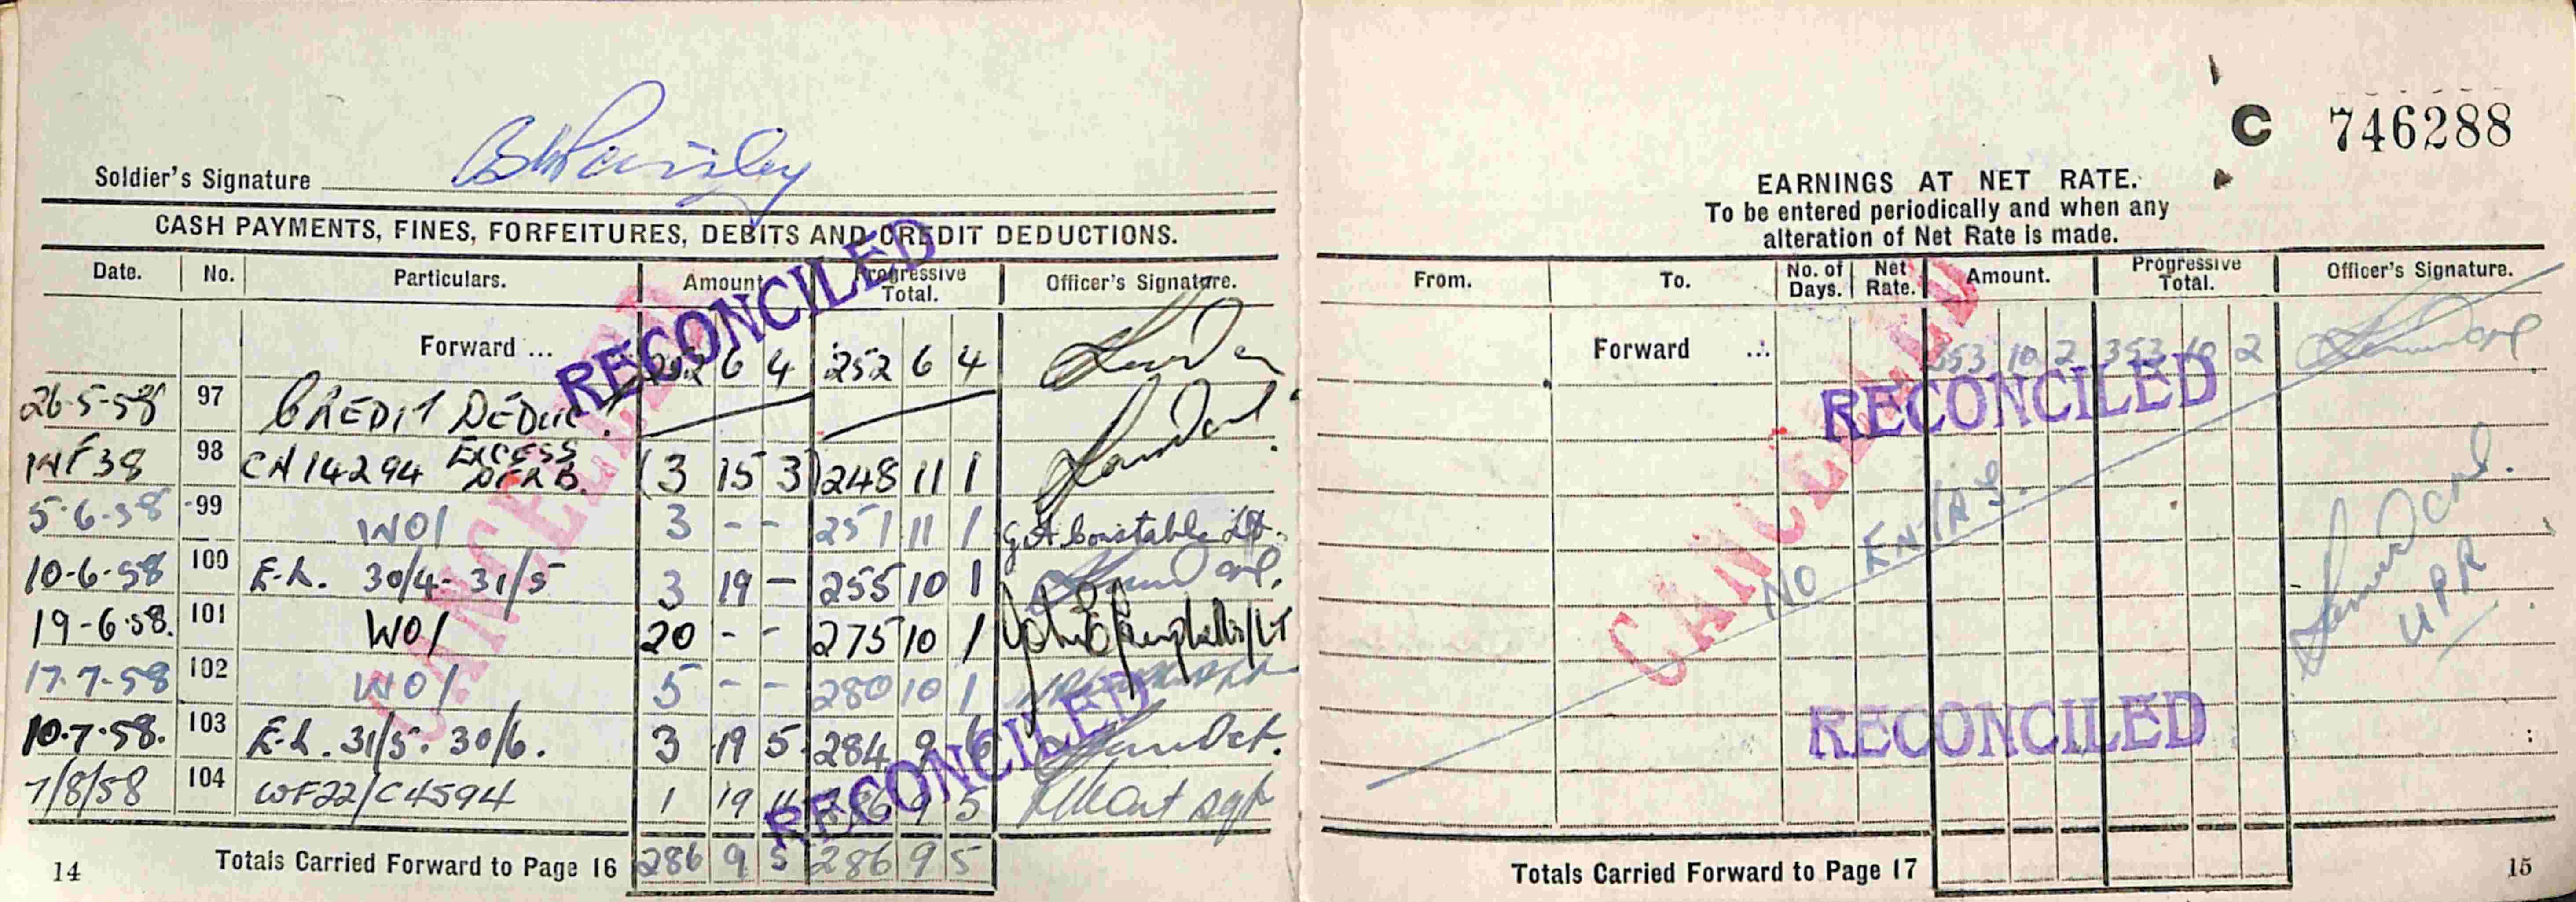 Soldier's Signature
CASH PAYMENTS, FINES, FORFEITURES, DEBITS AND CREDIT DEDUCTIONS.
Date. No. Particulars. Amount Progressive Total. Officer's Signature.
Forward ... 252 6 4 252 6 4
26-5-58 97 CREDIT DEDUC
98 CA 14294 EXCESS DFRB. (3 15 3) 248 11 1
5-6-58 99 WO1 3 - - 251 11 1 G A Constable Lt.
10-6-58 100 E.A. 30/4-31/5 3 19 - 255 10 1
19-6-58. 101 WO1 20 - - 275 10 1
17-7-58 102 WO1 5 - - 280 10 1
10-7-58. 103 E.A. 31/5. 30/6. 3 19 5. 284 9 6
7/8/58 104 WF22/C4594 1 19 11 286 9 5
Totals Carried Forward to Page 16 286 9 5 286 9 5
14
RECONCILED
RECONCILED
CANCELLED
C 746288
EARNINGS AT NET RATE.
To be entered periodically and when any
alteration of Net Rate is made.
From. To. No. of Days. Net Rate. Amount. Progressive Total. Officer's Signature.
Forward ... 353 10 2 353 10 2
RECONCILED
CANCELLED
NO ENTRY.
UPR
RECONCILED
Totals Carried Forward to Page 17
15